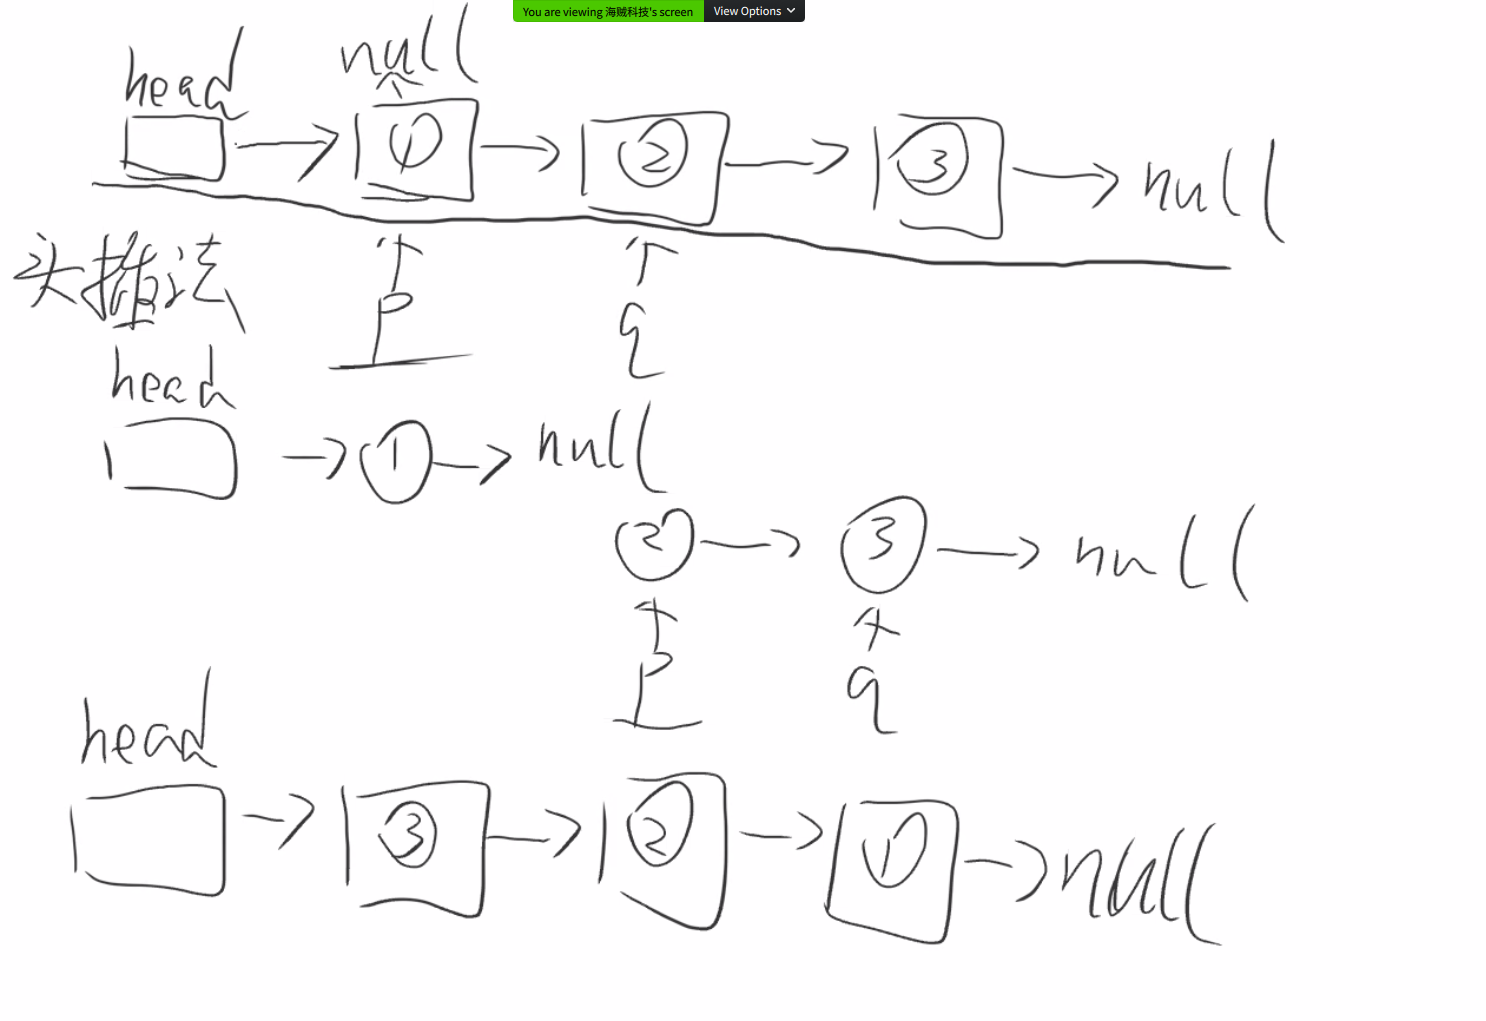 You are viewing 海贼科技's screen View Options
head null
① → ② → ③ → null
头插法
p q
head
① → null
② → ③ → null
p q
head
③ → ② → ① → null